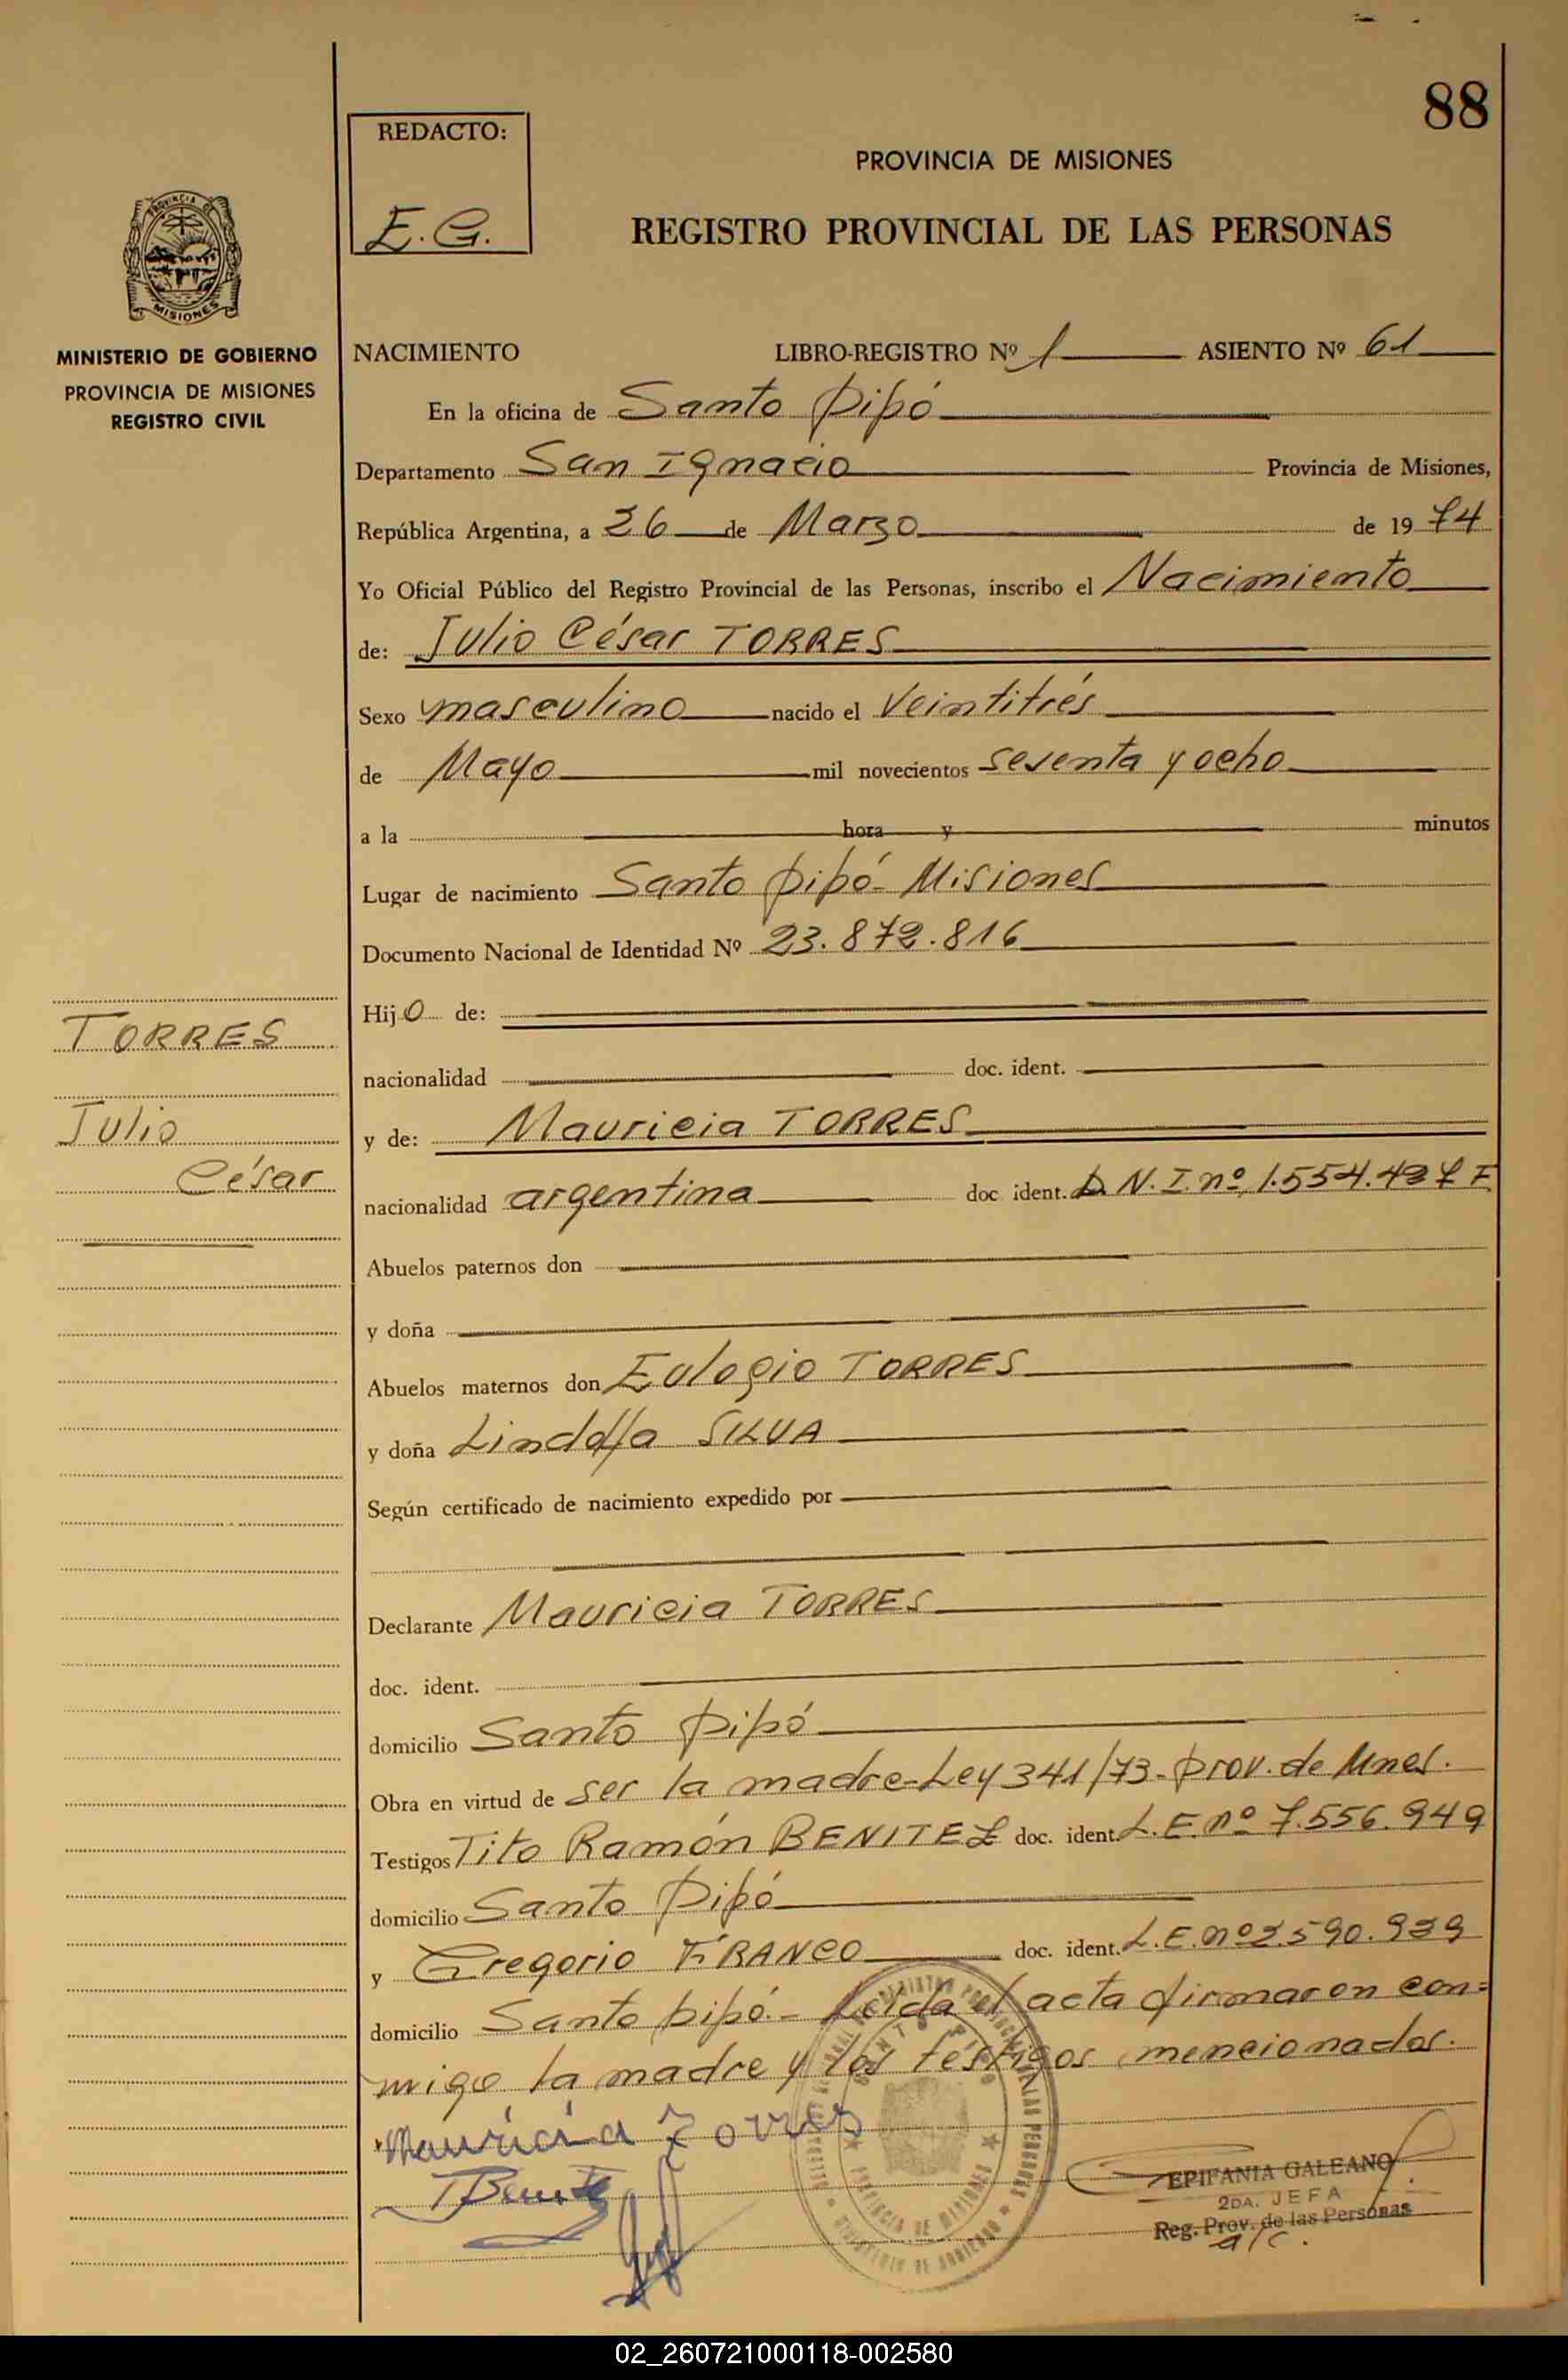 88
REDACTO:
E.G.
PROVINCIA DE MISIONES
REGISTRO PROVINCIAL DE LAS PERSONAS
PROVINCIA DE
MISIONES
MINISTERIO DE GOBIERNO
PROVINCIA DE MISIONES
REGISTRO CIVIL
NACIMIENTO LIBRO-REGISTRO Nº 1 ASIENTO Nº 61
En la oficina de Santo Pipó
Departamento San Ignacio Provincia de Misiones,
República Argentina, a 26 de Marzo de 1974
Yo Oficial Público del Registro Provincial de las Personas, inscribo el Nacimiento
de: Julio César TORRES
Sexo masculino nacido el Veintitrés
de Mayo mil novecientos sesenta y ocho
a la hora y minutos
Lugar de nacimiento Santo Pipó - Misiones
Documento Nacional de Identidad Nº 23.872.816
Hijo de:
TORRES
nacionalidad doc. ident.
Julio
y de: Mauricia TORRES
César
nacionalidad argentina doc ident. D.N.I. nº 1.554.427 F
Abuelos paternos don
y doña
Abuelos maternos don Eulogio TORRES
y doña Lindolfa SILVA
Según certificado de nacimiento expedido por
Declarante Mauricia TORRES
doc. ident.
domicilio Santo Pipó
Obra en virtud de ser la madre - Ley 341/73 - Prov. de Mnes.
Testigos Tito Ramón BENITEZ doc. ident. L.E. nº 7.556.949
domicilio Santo Pipó
y Gregorio FRANCO doc. ident. L.E. nº 2.590.939
domicilio Santo Pipó. - Leida el acta firmaron con=
migo la madre y los testigos mencionados.
Mauricia Torres
TBenitez
EPIFANIA GALEANO
2DA. JEFA
Reg. Prov. de las Personas
a/c.
SANTO PIPO
PROVINCIA DE MISIONES
02_260721000118-002580